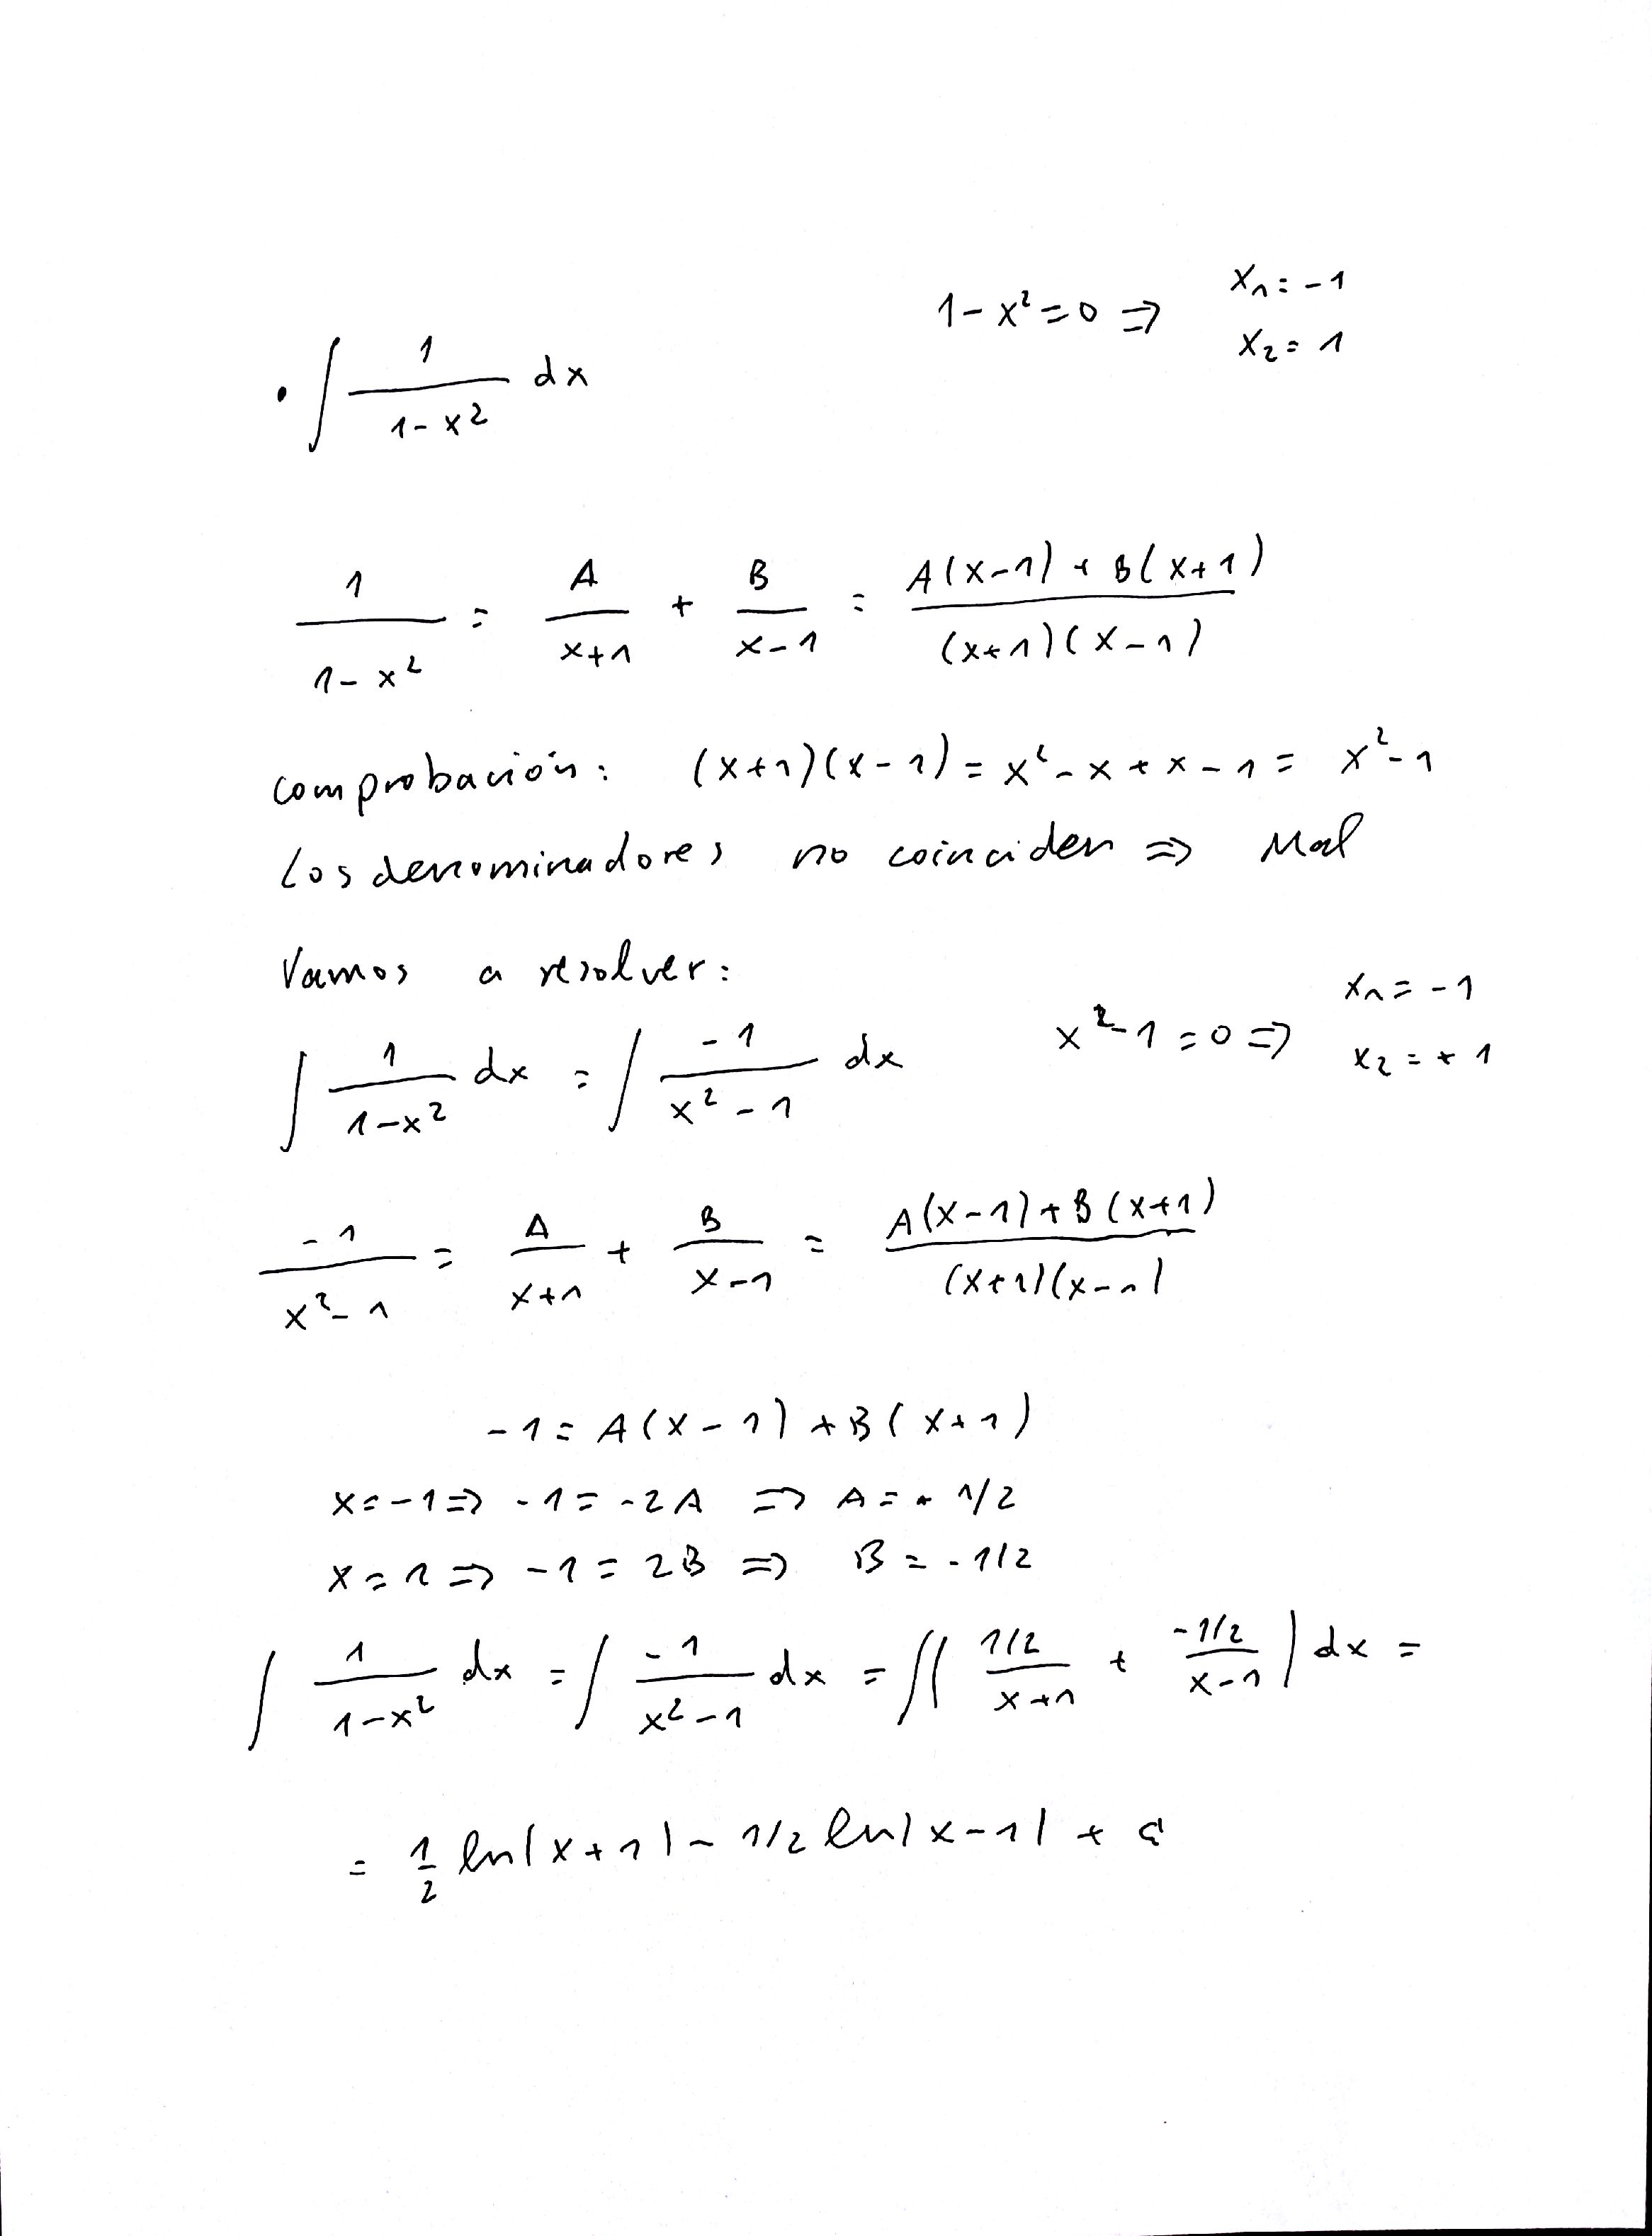 1-x²=0 ⇒ x₁=-1
x₂=1
· ∫ 1/(1-x²) dx
1/(1-x²) = A/(x+1) + B/(x-1) = (A(x-1)+B(x+1))/((x+1)(x-1))
comprobación: (x+1)(x-1)=x²-x+x-1= x²-1
Los denominadores no coinciden ⇒ Mal
Vamos a resolver:
∫ 1/(1-x²) dx = ∫ -1/(x²-1) dx x²-1=0 ⇒ x₁=-1
x₂=+1
-1/(x²-1) = A/(x+1) + B/(x-1) = (A(x-1)+B(x+1))/((x+1)(x-1))
-1=A(x-1)+B(x+1)
x=-1⇒ -1=-2A ⇒ A=+1/2
x=1⇒ -1=2B ⇒ B=-1/2
∫ 1/(1-x²) dx = ∫ -1/(x²-1) dx = ∫( (1/2)/(x+1) + (-1/2)/(x-1) ) dx =
= 1/2 ln|x+1| - 1/2 ln|x-1| + C